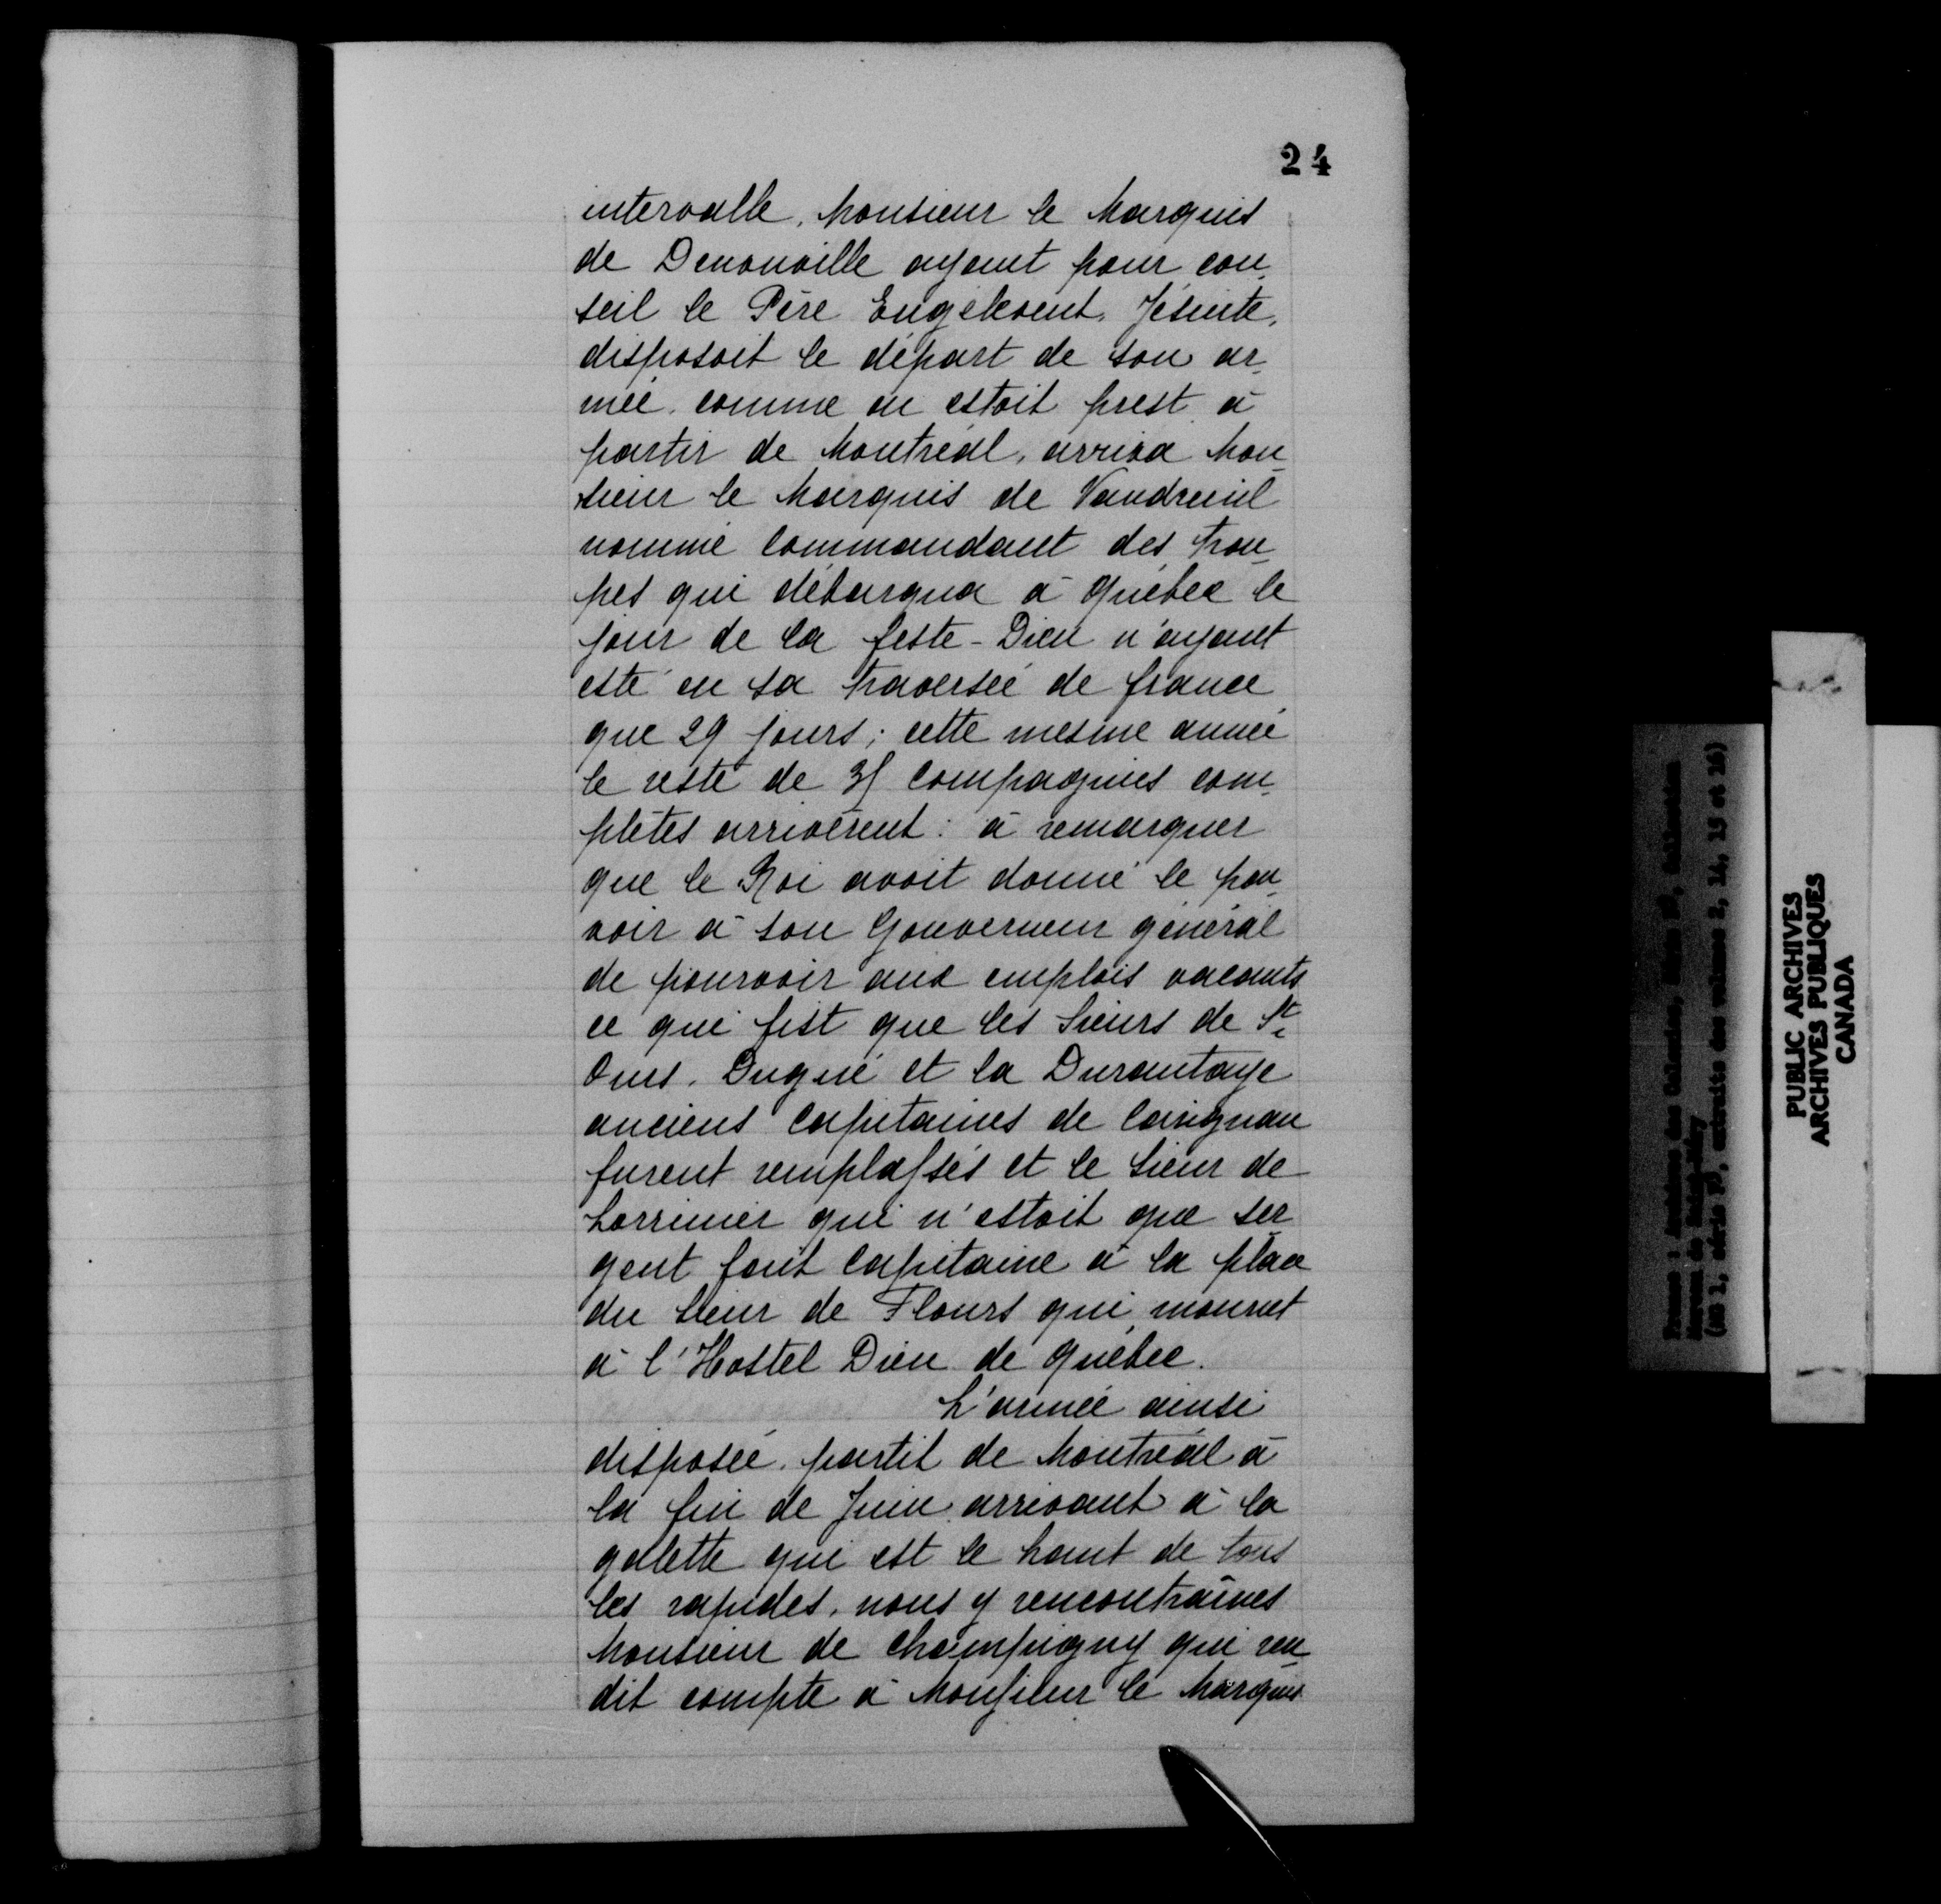 24
intervalle, Monsieur le Marquis
de Denonville ayant pour con-
seil le Père Engelvent, Jésuite,
disposoit le départ de son ar-
mée, comme on estoit prest à
partir de Montréal, arriva Mon-
sieur le Marquis de Vaudreuil
nommé Commandant des trou-
pes qui débarqua à Québec le
jour de la feste-Dieu n'ayant
esté en sa traversée de france
que 29 jours; cette mesme année
le reste de compagnies com-
plètes arrivèrent: à remarquer
que le Roi avoit donné le pou-
voir à son Gouverneur général
de pourvoir aux emplois vacants
ce qui fist que les Sieurs de St
Ours, Dugué et la Durantaye
anciens Capitaines de Carignan
furent remplassés et le Sieur de
Lorrimier qui n'estoit que ser
gent fait Capitaine à la place
du Sieur de Flours qui mourut
à l'Hostel Dieu de Québec.
L'armée ainsi
disposée, partit de Montréal à
la fin de Juin, arrivant à la
galette qui est le haut de tous
les rapides, nous y rencontrâmes
Monsieur de Champigny qui ren-
dit compte à Monsieur le Marquis
PUBLIC ARCHIVES
ARCHIVES PUBLIQUES
CANADA
(MG 1, série F3, extraits des volumes 2, 14, 15 et 16)